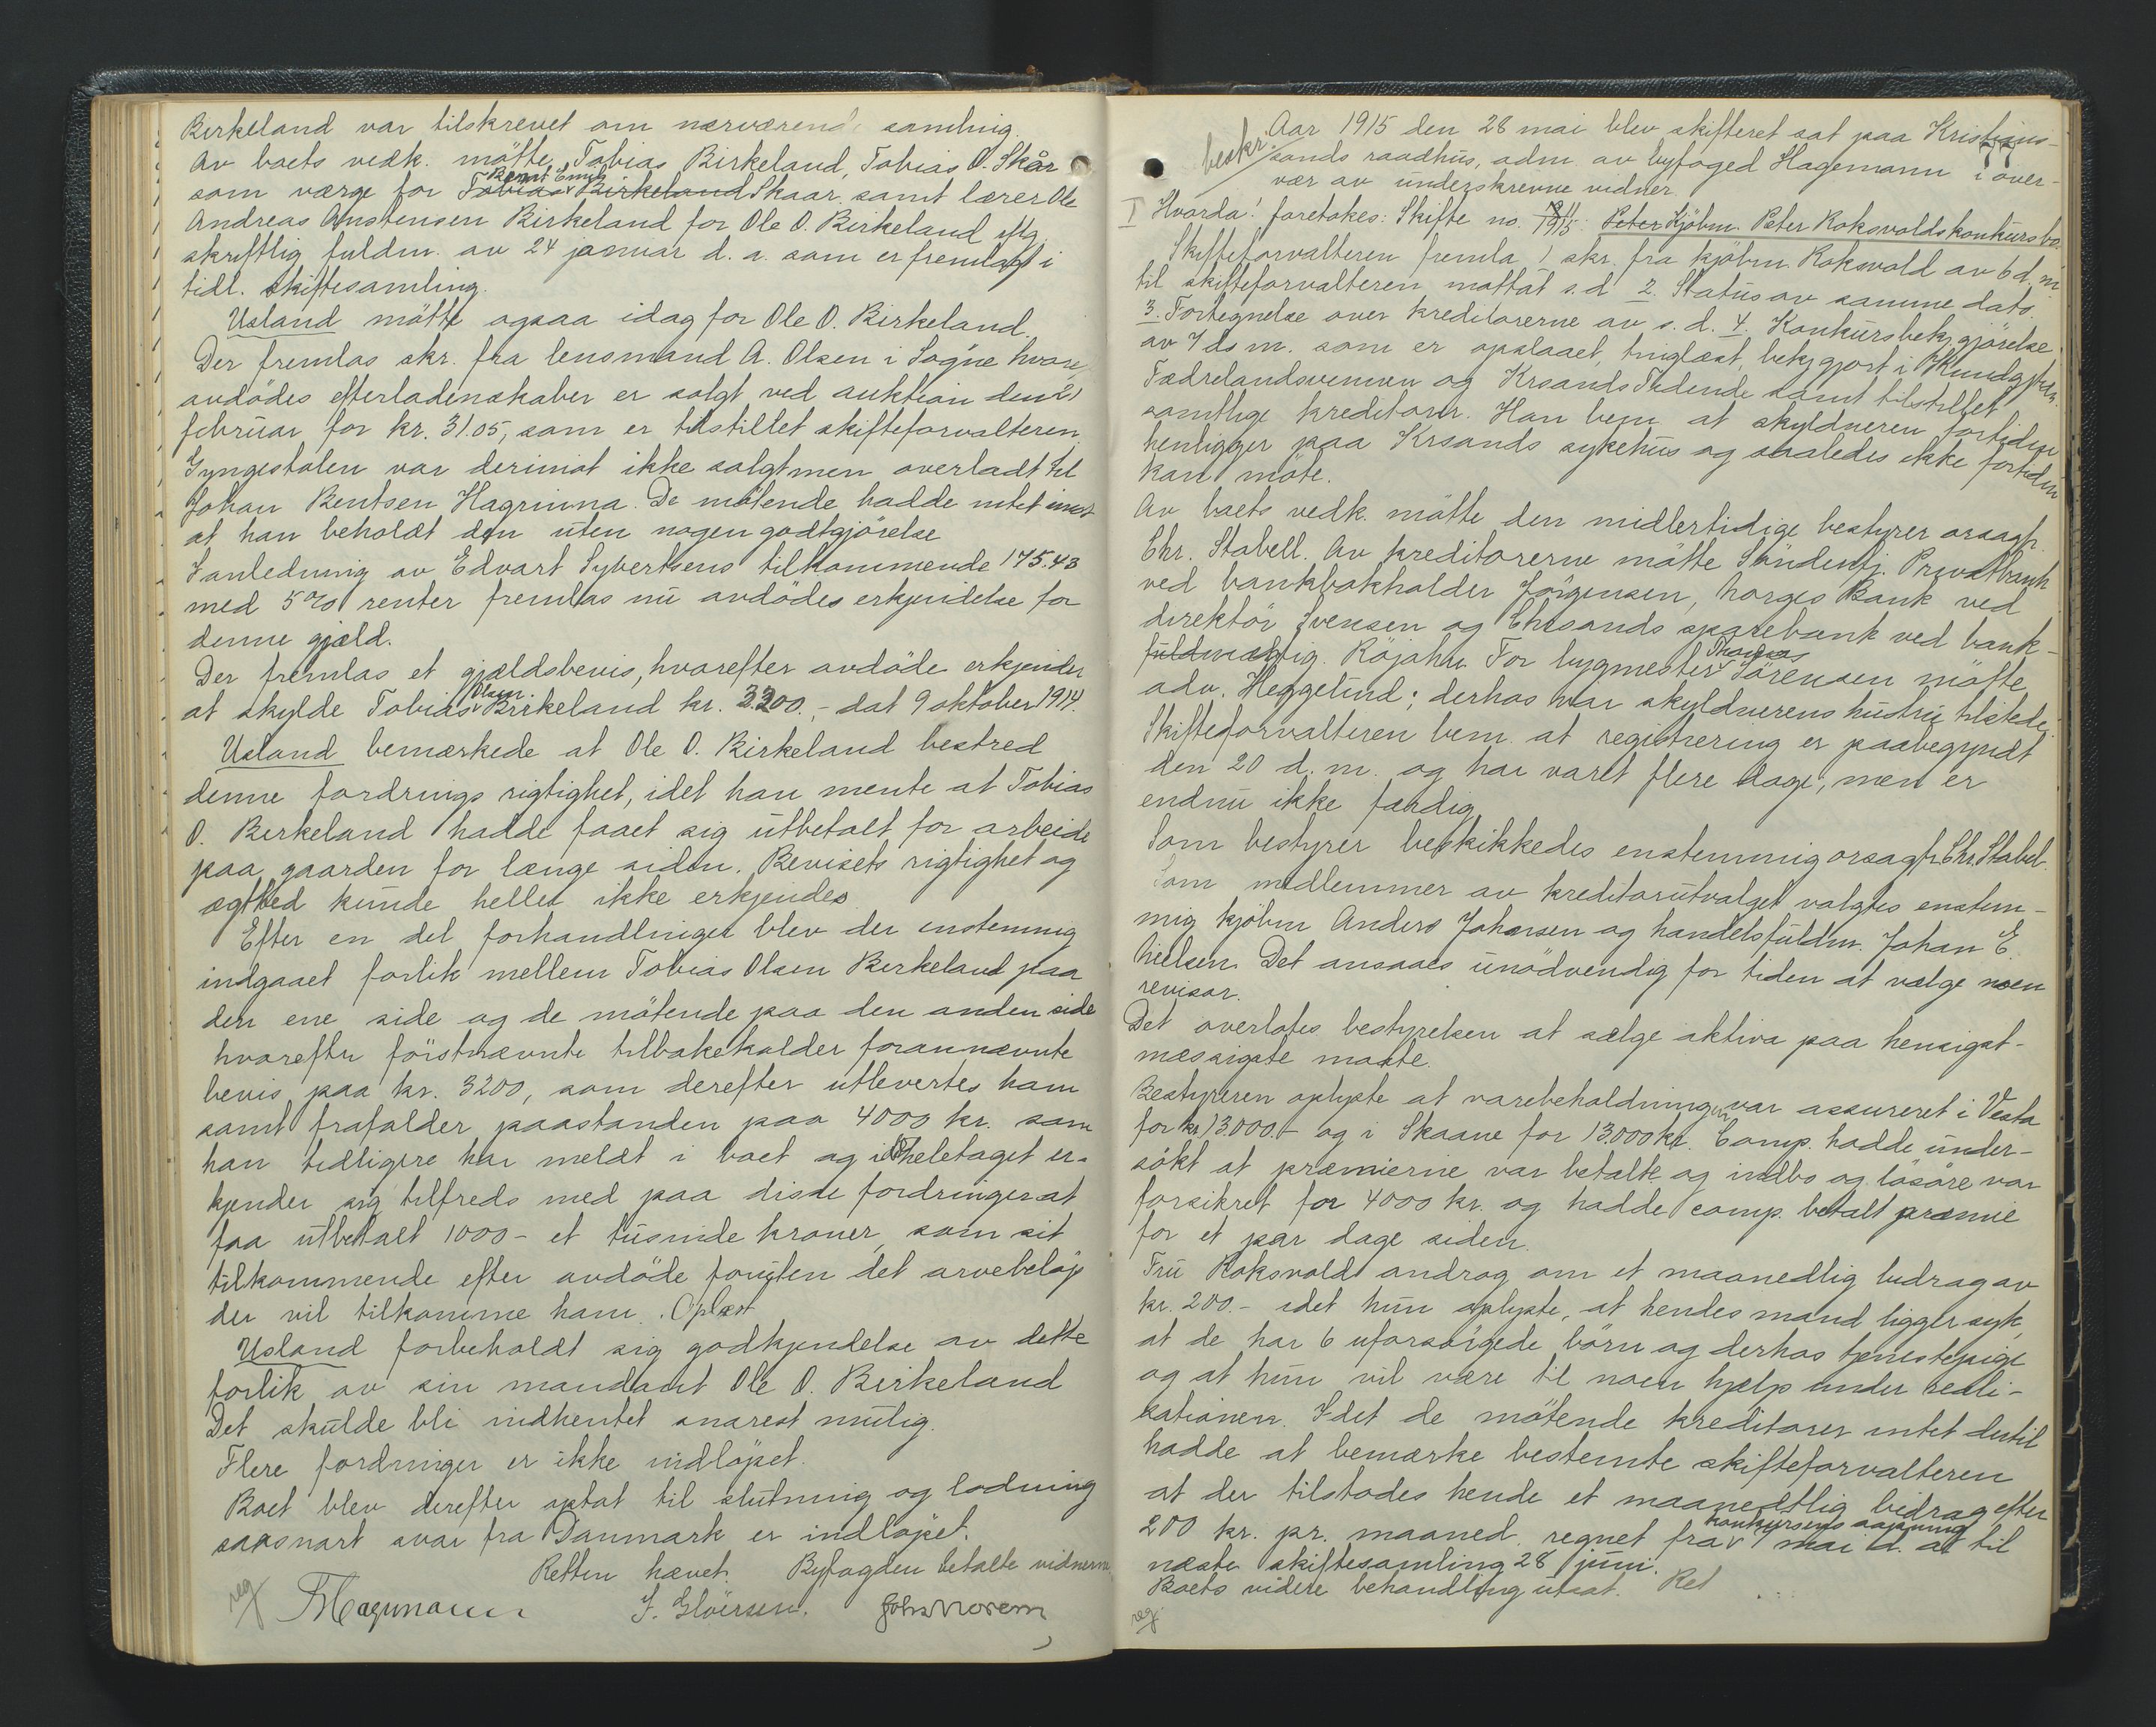 Birkeland var tilskrevet om nærværende samling.
Av boets vedk. mötte Tobias Birkeland, Tobias O. Skår
Bernt Emil
som værge for Tobias Birkeland Skaar samt lærer Ole
Andreas Anstensen Birkeland for Ole O. Birkeland eftg
skriftlig fuldm. av 24 januar d. a. som er fremlagt i
tidl. skiftesamling.
Usland mötte ogsaa idag for Ole O. Birkeland.
Der fremlas skr. fra lensmand A. Olsen i Sogne hvorav
avdödes efterladenskaber er solgt ved auktion den 21
februar for kr. 31.05, som er tilstillet skifteforvalteren.
Gyngestolen var derimot ikke solgt men overladt til
Johan Bentsen Hagrinna. De mötende hadde intet imot
at han beholdt den uten nogen godtgjörelse
I anledning av Edvart Sybertsens tilkommende 175.43
med 5% renter fremlas nu avdödes erkjendelse for
denne gjæld.
Der fremlas et gjældsbevis, hvorefter avdöde erkjender
Olsen
at skylde Tobias Birkeland kr. 3200.- dat 9 oktober 1914.
Usland bemærkede at Ole O. Birkeland bestred
denne fordrings rigtighet, idet han mente at Tobias
O. Birkeland hadde faaet sig utbetalt for arbeide
paa gaarden for længe siden. Bevisets rigtighet og
ægthed kunde heller ikke erkjendes
Efter en del forhandlinger blev der enstemmig
indgaaet forlik mellem Tobias Olsen Birkeland paa
den ene side og de mötende paa den anden side
hvorefter förstnævnte tilbakekalder forannævnte
bevis paa kr. 3200, som derefter utlevertes ham
samt frafalder paastanden paa 4000 kr. som
han tidligere har meldt i boet og i heletaget er-
kjender sig tilfreds med paa disse fordringer at
faa utbetalt 1000 - et tusinde kroner, som sit
tilkommende efter avdöde foruten det arvebelöp
der vil tilkomme ham. Oplæst
Usland forbeholdt sig godkjendelse av dette
forlik av sin mandant Ole O. Birkeland
Det skulde bli indhentet snarest mulig.
Flere fordringer er ikke indlöpet.
Boet blev derefter optat til slutning og lodning
saasnart svar fra Danmark er indlöpet.
Retten hævet. Byfogden betalte vidnerne
reg Hagemann J. Glöersen. John Norem
77
beskr. Aar 1915 den 28 mai blev skifteret sat paa Kristians-
sands raadhus, adm. av byfoged Hagemann i over-
vær av underskrevne vidner.
I Hvorda! foretokes: Skifte no. 1915. Peter Kjöbm. Peter Roksvolds konkursbo.
Skifteforvalteren fremla 1 skr. fra kjöbm Roksvold av 6 d. m
til skifteforvalteren, mottat s. d 2. Status av samme dato.
3. Fortegnelse over kreditorerne av s. d. 4. Konkursbekgjörelse
av 7 ds m. som er opslaaet, tinglæst, bekjgjort i Kundgj
Fædrelandsvennen og Krsands Tidende samt tilstillet
samtlige kreditorer. Han bem. at skyldneren fortiden
henligger paa Krsands sykehus og saaledes ikke fortiden
kan möte.
Av boets vedk. mötte den midlertidige bestyrer orsagf.
Chr. Stabell. Av kreditorerne mötte Söndenfj. Privatbank
ved bankbokholder Jörgensen, Norges Bank ved
direktör Svensen og Chrsands sparebank ved bank-
fuldmægtig Röjahn. For bygmester Thomas Sörensen mötte
adv. Heggelund; derhos var skyldnerens hustru tilstede.
Skifteforvalteren bem. at registrering er paabegyndt
den 20 d. m. og har varet flere dage, men er
endnu ikke færdig
Som bestyrer beskikkedes enstemmig orsagf. Chr. Stabel.
Som medlemmer av kreditorutvalget valgtes enstem-
mig kjöbm Anders Johansen og handelsfuldm. Johan E.
Nielsen. Det ansaaes unödvendig for tiden at vælge noen
revisor.
Det overlotes bestyrelsen at sælge aktiva paa hensigst-
mæssigste maate.
Bestyreren oplyste at varebeholdningen var assureret i Vesta
for kr 13.000.- og i Skaane for 13.000 kr. Comp. hadde under-
sökt at præmierne var betalt og indbo og lösöre var
forsikret for 4000 kr. og hadde comp. betalt præmie
for et par dage siden.
Fru Roksvold androg om et maanedlig bidrag av
kr. 200.- idet hun oplyste, at hendes mand ligger syk,
at de har 6 uforsörgede börn og derhos tjenestepige
og at hun vil være til noen hjælp under reali-
sationen. Idet de mötende kreditorer intet dertil
hadde at bemærke bestemte skifteforvalteren
at der tilstodes hende et maanedtlig bidrag efter
konkursens aapning
200 kr. pr. maaned regnet fra mai d. a. til
næste skiftesamling 28 juni.
Boets videre behandling utsat. Ret
reg